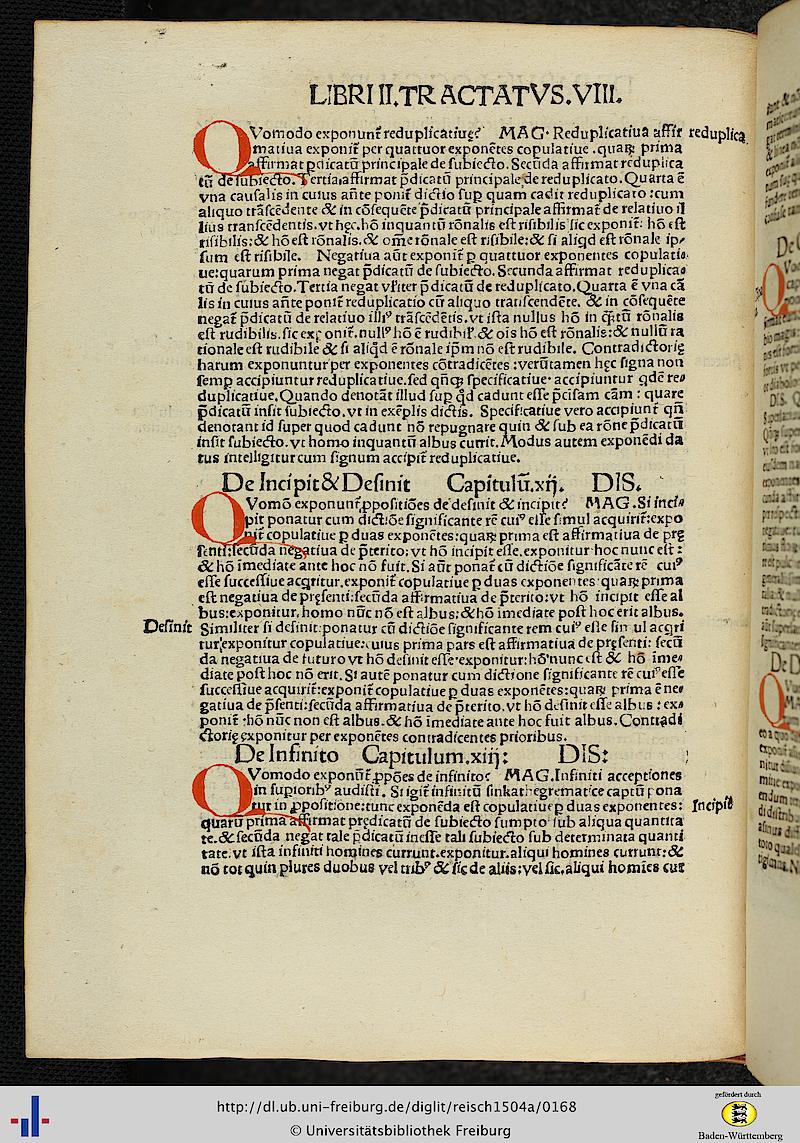 LIBRI II. TRACTATVS. VIII.
QVomodo exponunt̃ reduplicatiuę? MAG. Reduplicatiua affir reduplica
matiua exponit̃ per quattuor exponẽtes copulatiue .quaꝝ prima
affirmat p̃dicatũ principale de subiecto. Secũda affirmat reduplica
tũ de subiecto. Tertia affirmat p̃dicatũ principale de reduplicato. Quarta ẽ
vna causalis in cuius añte ponit̃ dictio sup quam cadit reduplicatio :cum
aliquo trãscẽdente & in cõsequẽte p̃dicatũ principale affirmat̃ de relatiuo il
lius transcẽdentis. vt hęc. hõ inquantũ rõnalis est risibilis sic exponit̃: hõ est
risibilis: & hõ est rõnalis. & om̃e rõnale est risibile: & si aliqd est rõnale ip/
sum est risibile. Negatiua aũt exponit̃ ꝑ quattuor exponentes copulatio
ue: quarum prima negat p̃dicatũ de subiecto. Secunda affirmat reduplica⸗
tũ de subiecto. Tertia negat vl̃iter p̃dicatũ de reduplicato. Quarta ẽ vna cã
lis in cuius añte ponit̃ reduplicatio cũ aliquo transcendẽte. & in cõsequẽte
negat̃ p̃dicatũ de relatiuo illiꝰ trãscẽdẽtis. vt ista nullus hõ in q̃tũ rõnalis
est rudibilis. sic exponit̃. nullꝰ hõ ẽ rudibil̃. & oĩs hõ est rõnalis: & nullũ ra
tionale est rudibile & si aliq̃d ẽ rõnale ip̃m nõ est rudibile. Contradictorię
harum exponuntur per exponentes cõtradicẽtes :verũtamen hęc signa non
semꝑ accipiuntur reduplicatiue. sed qñqꝫ specificatiue· accipiuntur qdẽ re⸗
duplicatiue. Quando denotãt illud sup q̃d cadunt esse p̃cisam cãm : quare
p̃dicatũ insit subiecto. vt in exẽplis dictis. Specificatiue vero accipiunt̃ qñ
denotant id super quod cadunt nõ repugnare quin & sub ea rõne p̃dicatũ
insit subiecto. vt homo inquantũ albus currit. Modus autem exponẽdi da
tus intelligitur cum signum accipit̃ reduplicatiue.
De Incipit & Desinit Capitulũ. xij. DIS.
QVomõ exponunt̃ ꝓpositiões de desinit & incipit? MAG. Si inci⸗
pit ponatur cum dictiõe significante rẽ cuiꝰ esse simul acquirit̃: expo
nit̃ copulatiue ꝑ duas exponẽtes: quaꝝ prima est affirmatiua de prę
senti: secũda negatiua de p̃terito; vt hõ incipit esse. exponitur hoc nunc est :
& hõ ĩmediate ante hoc nõ fuit. Si aũt ponat̃ cũ dictiõe significãte rẽ cuiꝰ
esse successiue acqritur. exponit̃ copulatiue ꝑ duas exponentes quaꝝ prima
est negatiua de pręsenti: secũda affirmatiua de p̃terito: vt hõ incipit esse al
bus: exponitur, homo nũc nõ est albus: & hõ ĩmediate post hoc erit albus.
Desinit Similiter si desinit: ponatur cũ dictiõe significante rem cuiꝰ esse simul acqri
tur, exponitur copulatiue: cuius prima pars est affirmatiua de pręsenti: secũ
da negatiua de futuro vt hõ desinit esse· exponitur: hõ nunc est & hõ ĩme⸗
diate post hoc nõ erit. Si autẽ ponatur cum dictione significante rẽ cuiꝰ esse
successiue acquirit̃: exponit̃ copulatiue ꝑ duas exponẽtes: quaꝝ prima ẽ ne⸗
gatiua de p̃senti: secũda affirmatiua de p̃terito. vt hõ desinit esse albus : ex⸗
ponit̃ ·hõ nũc non est albus. & hõ ĩmediate ante hoc fuit albus. Contradi
ctorię exponitur per exponẽtes contradicentes prioribus.
De Infinito Capitulum. xiij: DIS:
QVomodo exponũt̃ ꝓpões de infinito? MAG. Infiniti acceptiones
in supioribꝰ audisti. Si igit̃ infinitũ sinkathegrematice captũ pona
tur in ꝓpositione: tunc exponẽda est copulatiue ꝑ duas exponentes: Incipit
quarũ prima affirmat prędicatũ de subiecto sumpto sub aliqua quantita
te. & secũda negat tale p̃dicatũ inesse tali subiecto sub determinata quanti
tate. vt ista infiniti homines currunt. exponitur. aliqui homines currunt: &
nõ tot quin plures duobus vel tribꝰ & sic de aliis; vel sic. aliqui homĩes cur
http://dl.ub.uni-freiburg.de/diglit/reisch1504a/0168
© Universitätsbibliothek Freiburg
gefördert durch
Baden-Württemberg